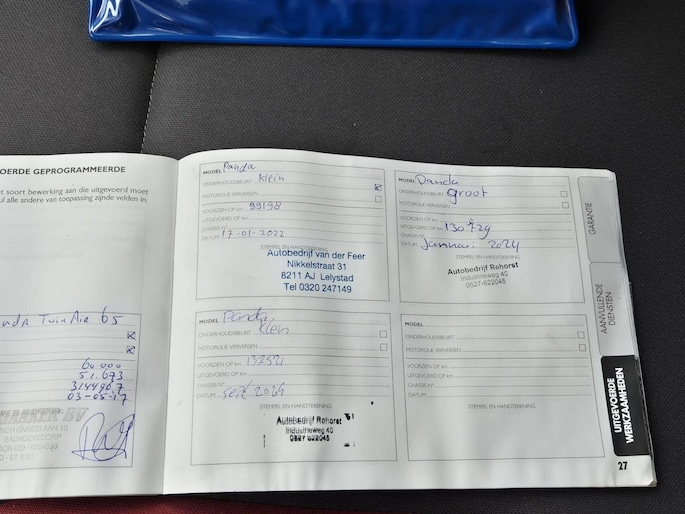 OERDE GEPROGRAMMEERDE
t soort bewerking aan die uitgevoerd moet
ul alle andere van toepassing zijnde velden in.
anda TwinAir 65
60.000
51.673
3144967
03-05-17
MODEL Panda
ONDERHOUDSBEURT klein
MOTOROLIE VERVERSEN
VOORZIEN OP km 99198
UITGEVOERD OP km
CHASSIS N°
DATUM 17-01-2022
STEMPEL EN HANDTEKENING
Autobedrijf van der Feer
Nikkelstraat 31
8211 AJ Lelystad
Tel 0320 247149
MODEL Panda
ONDERHOUDSBEURT groot
MOTOROLIE VERVERSEN
VOORZIEN OP km
UITGEVOERD OP km 130729
CHASSIS N°
DATUM Januari 2024
STEMPEL EN HANDTEKENING
Autobedrijf Rehorst
Industrieweg 40
0527-622045
MODEL Panda
ONDERHOUDSBEURT klein
MOTOROLIE VERVERSEN
VOORZIEN OP km
UITGEVOERD OP km
CHASSIS N°
DATUM Sept 2024
STEMPEL EN HANDTEKENING
Autobedrijf Rehorst
Industrieweg 40
0527 622045
MODEL
ONDERHOUDSBEURT
MOTOROLIE VERVERSEN
VOORZIEN OP km
UITGEVOERD OP km
CHASSIS N°
DATUM
STEMPEL EN HANDTEKENING
GARANTIE
AANVULLENDE
DIENSTEN
UITGEVOERDE
WERKZAAMHEDEN
27